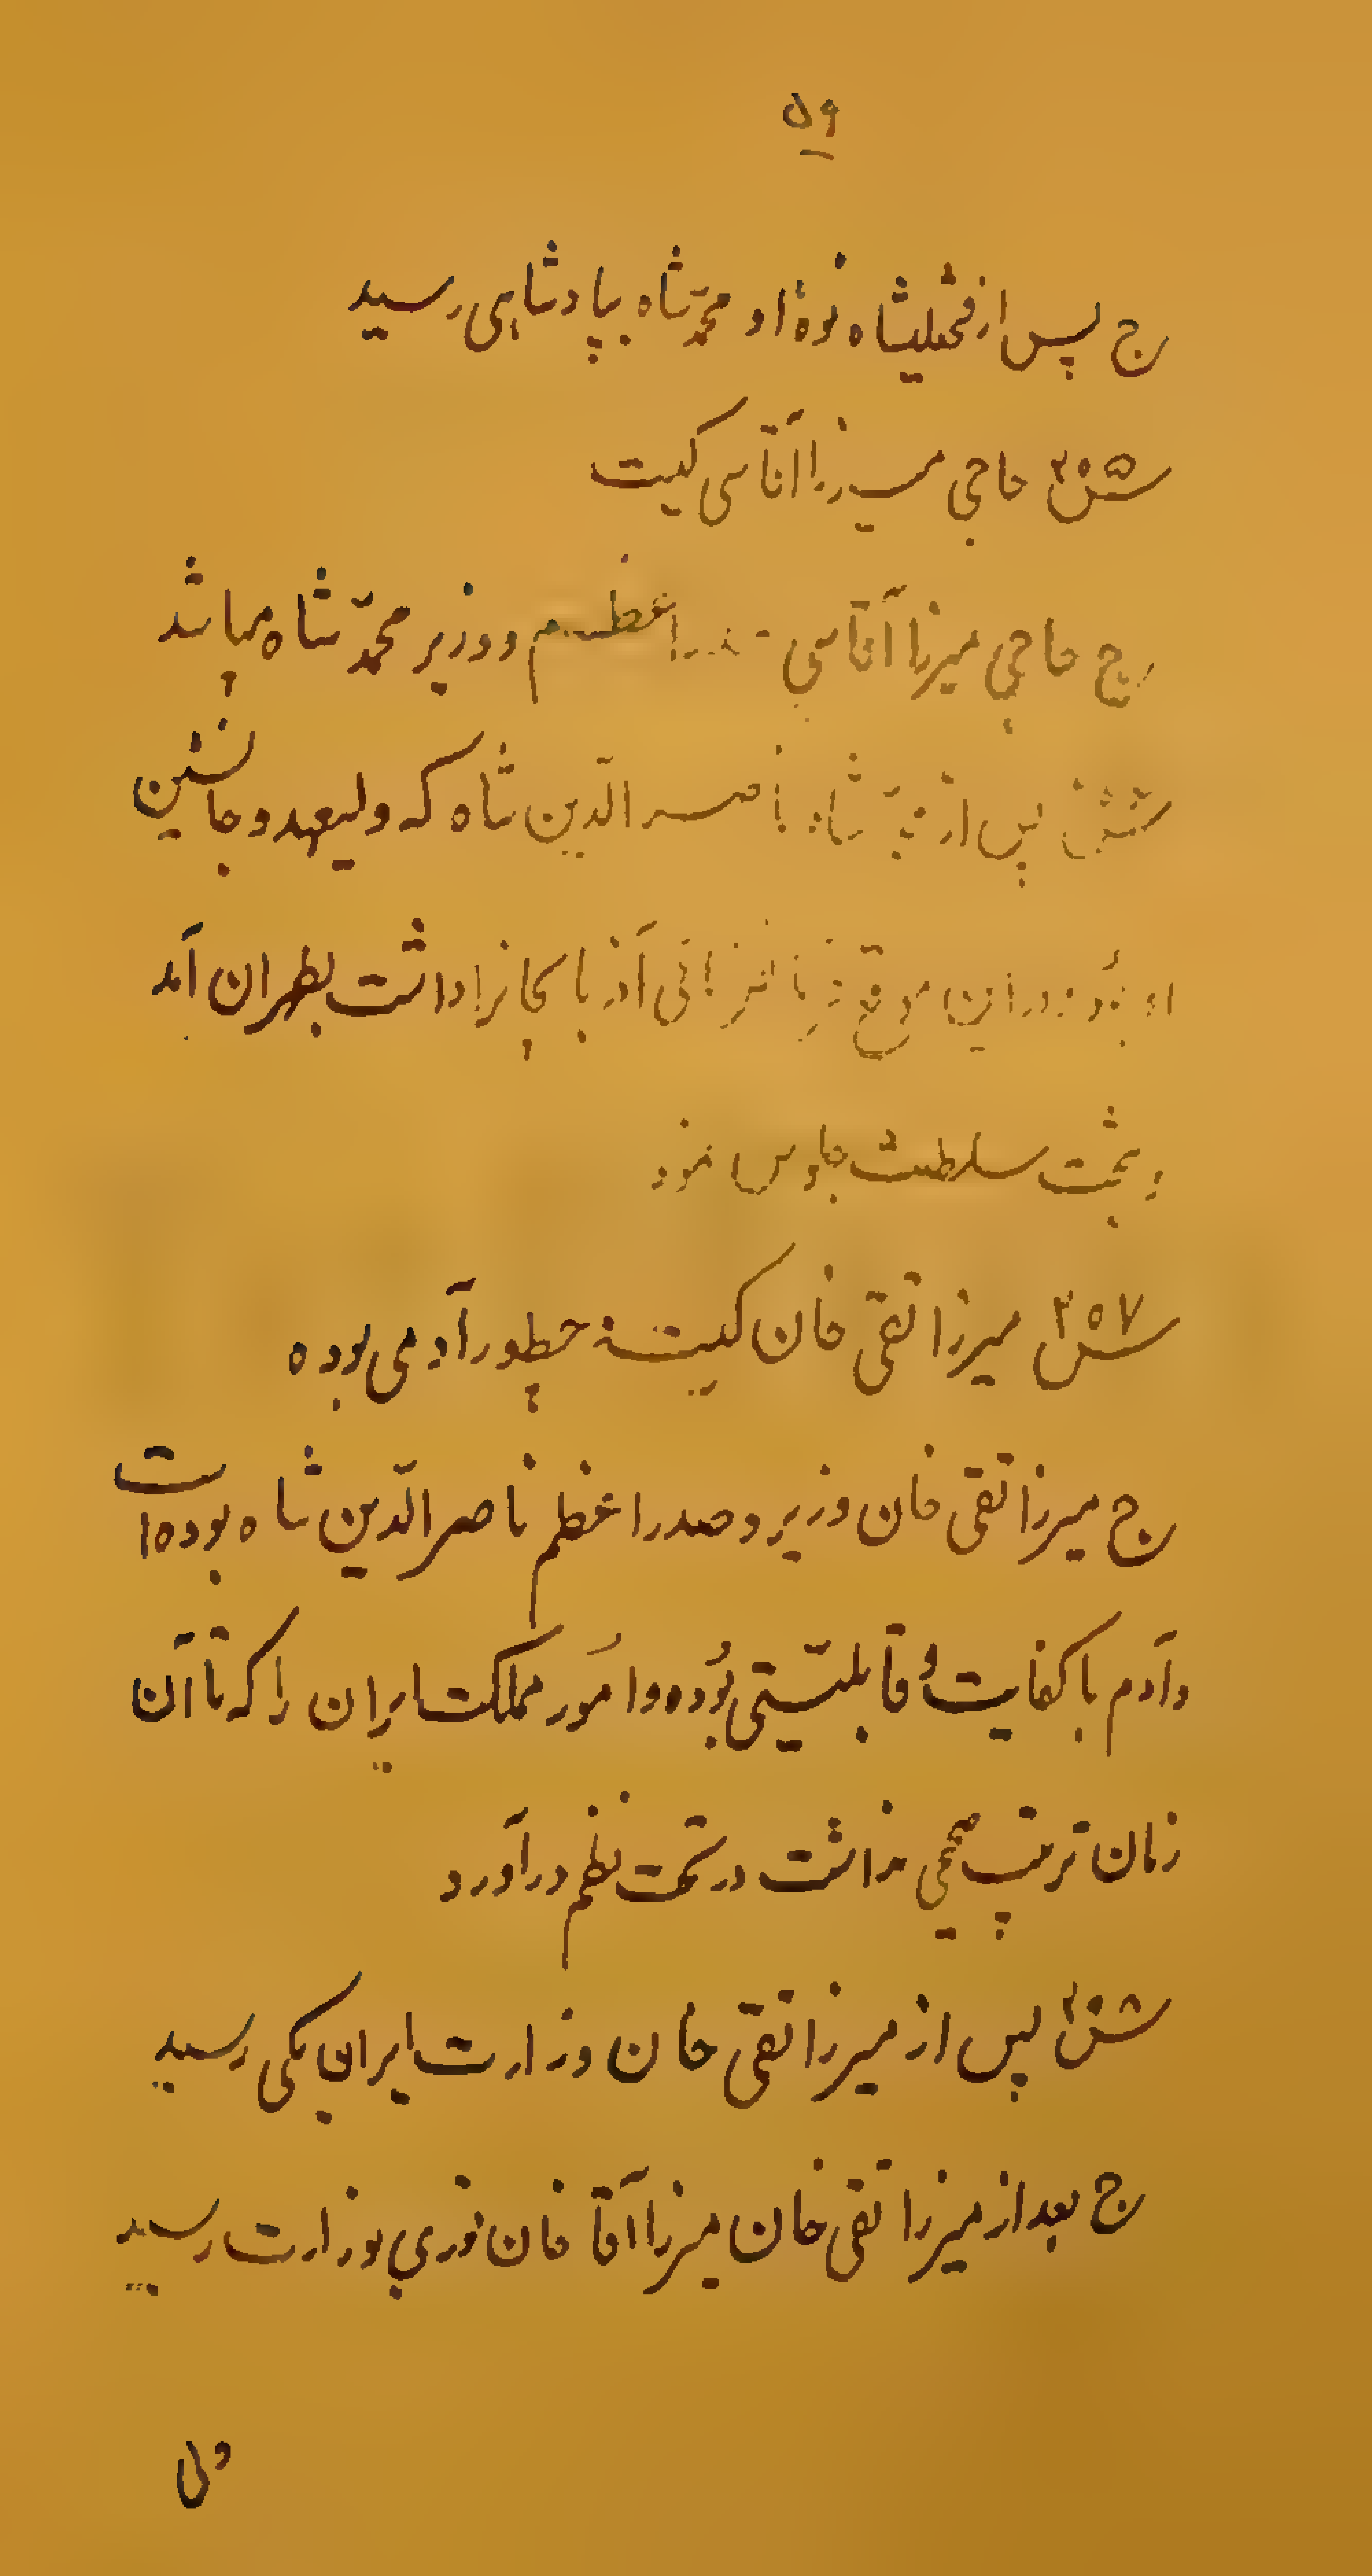 ۵۹
ج پس از فتحلیشاه نوهٔ او محمّد شاه بپادشاهی رسید
س ۲۰۵ حاجی میرزا آقاسی کیست
ج حاجی میرزا آقاسی اعظم و وزیر محمّد شاه میباشد
س پس از محمّد شاه ناصر الدّین شاه که ولیعهد و جانشین
او بُود و در این موقع فرمانفرمائی آذربایجانرا داشت بطهران آمد
و بتخت سلطنت جلوس نمود
س ۲۰۷ میرزا تقی خان کیست و چطور آدمی بوده
ج میرزا تقی خان وزیر و صدر اعظم ناصر الدّین شاه بوده است
و آدم با کفایت و قابلیّتی بُوده و امُور مملکت ایران را که تا آن
زمان ترتیب صحیحی نداشت در تحت نظم در آورد
س ۲۰۸ پس از میرزا تقی خان وزارت ایران بکی رسید
ج بعد از میرزا تقی خان میرزا آقا خان نوری بوزارت رسید
ولی